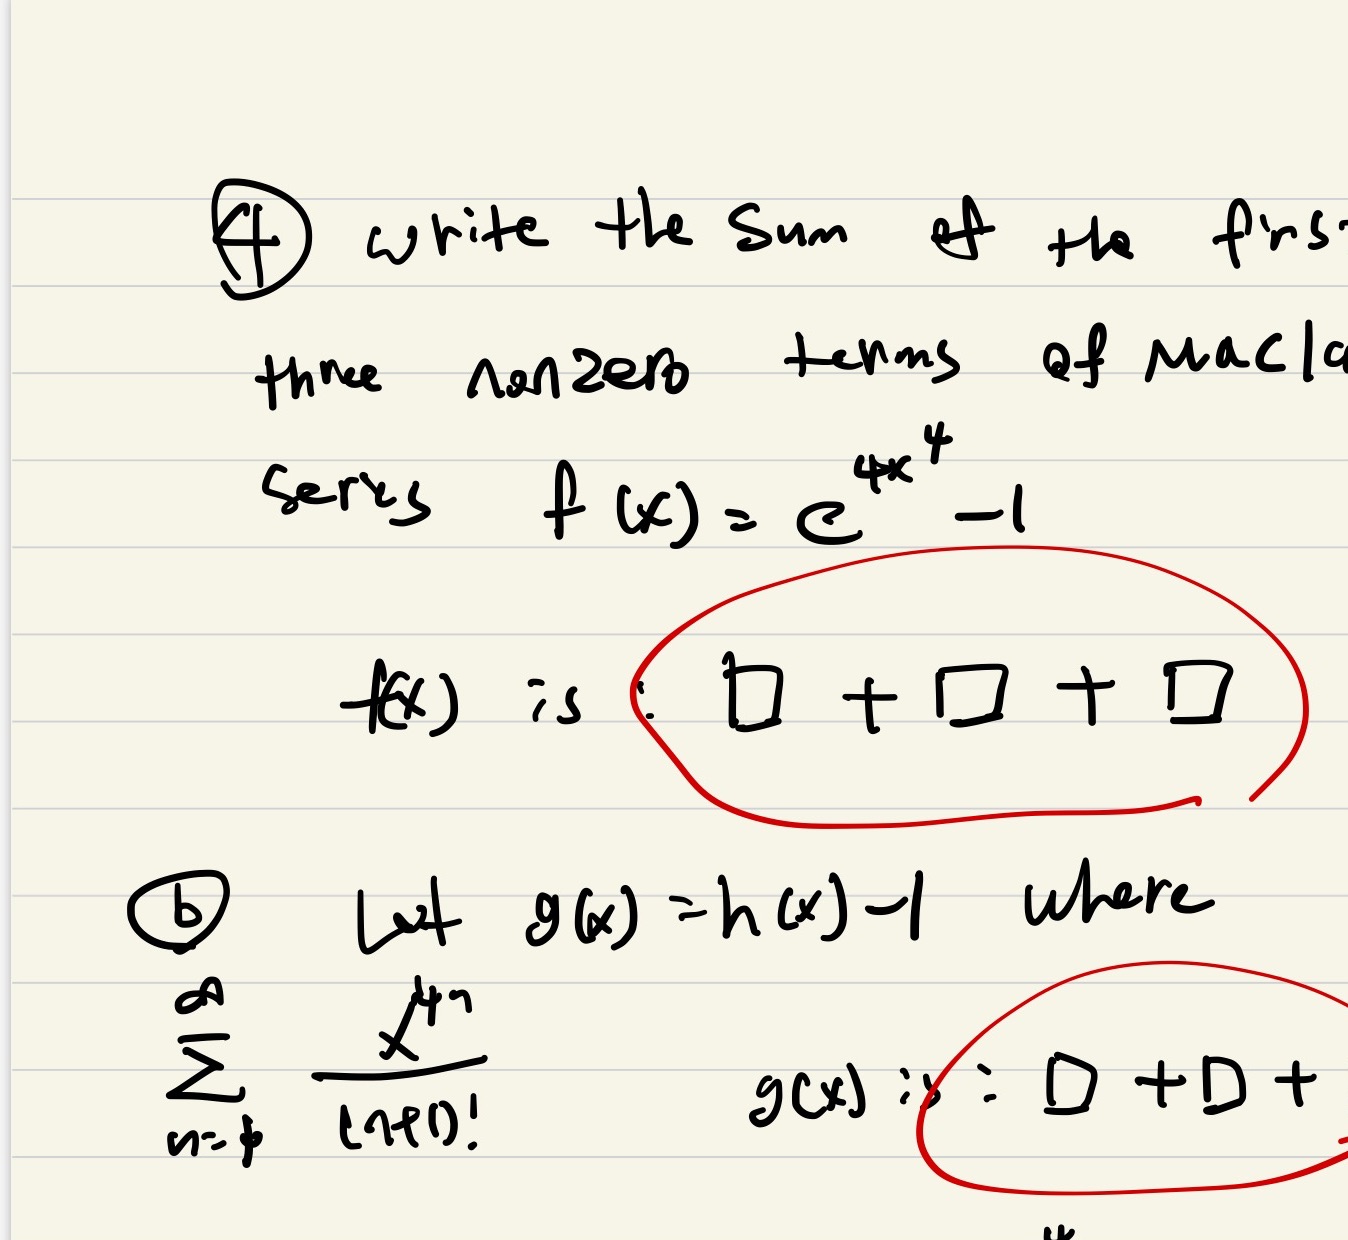 ④ write the Sum of the first
three nonzero terms of Macla
series f(x) = e^{4x^4} - 1
f(x) is : □ + □ + □
ⓑ Let g(x) = h(x) - 1 where
∞
∑ x^{4n} / (n+1)!
g(x) is : □ + □ +
4